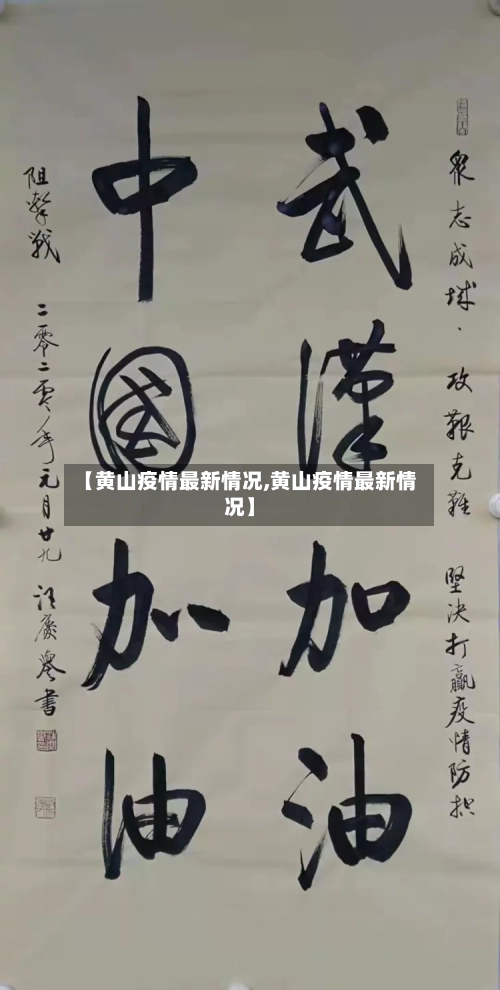 眾志成城·攻艱克難 堅决打贏疫情防控
武漢加油
中國加油
阻擊战 二零二零年元月廿九 江慶 書
【黄山疫情最新情况,黄山疫情最新情
况】